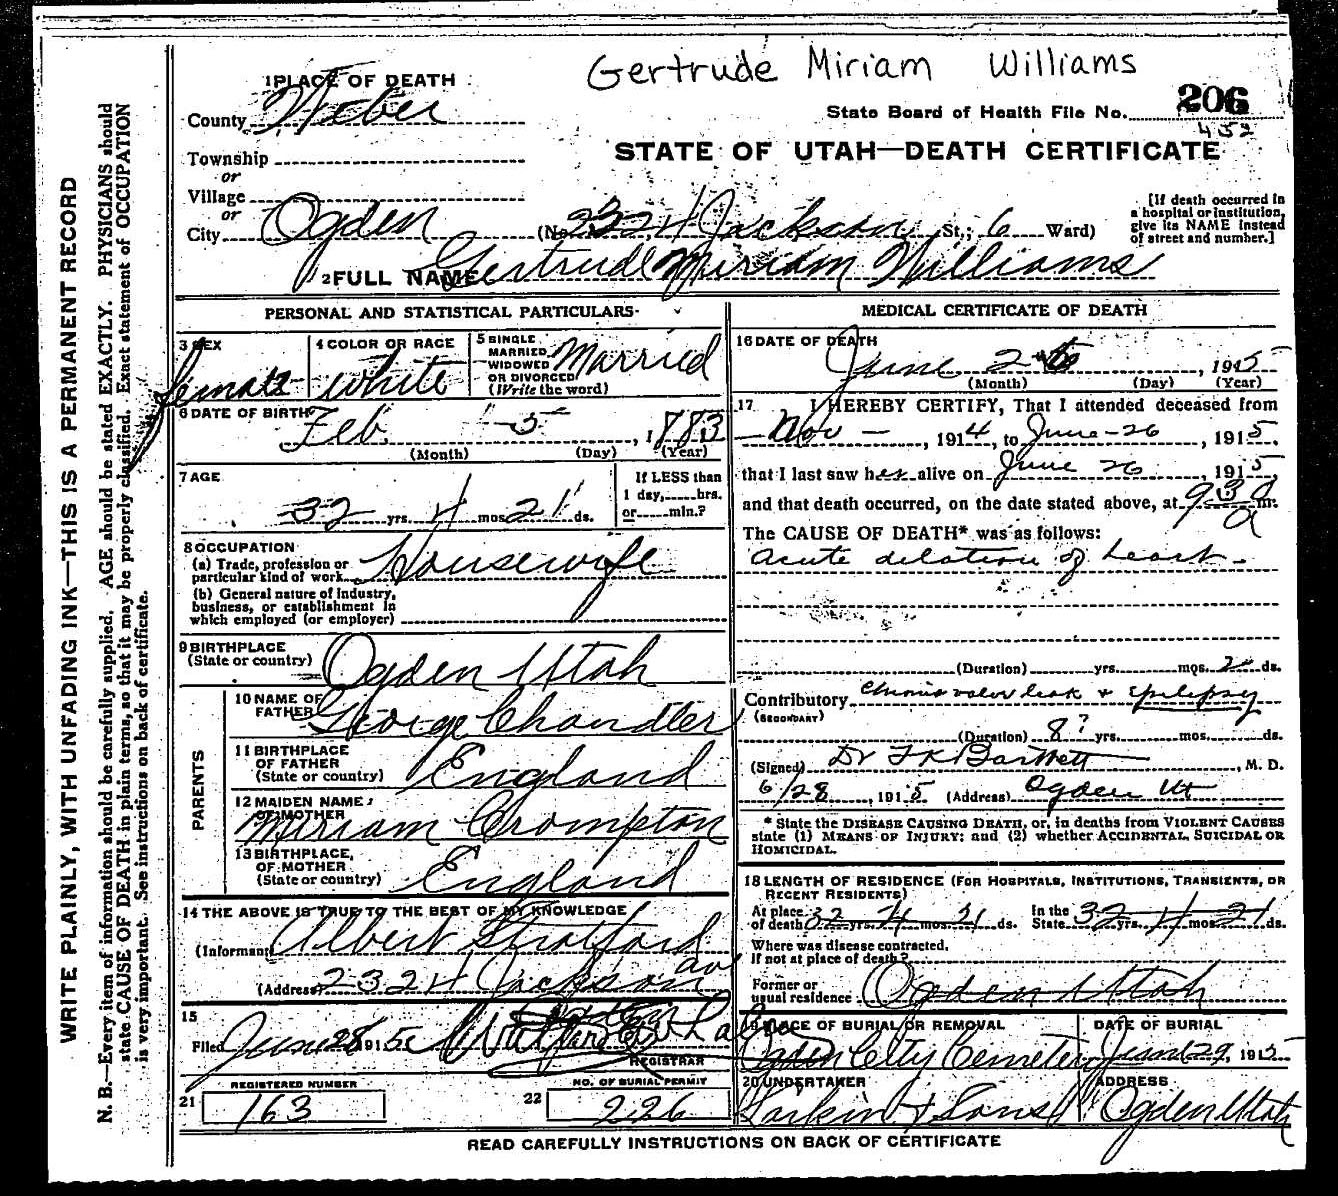 Gertrude Miriam Williams
1 PLACE OF DEATH
County Weber
State Board of Health File No. 206
452
Township
or
Village
or
City Ogden (No. 2324 Jackson St.; 6 Ward)
STATE OF UTAH—DEATH CERTIFICATE
[If death occurred in
a hospital or institution,
give its NAME instead
of street and number.]
2 FULL NAME Gertrude Miriam Williams
PERSONAL AND STATISTICAL PARTICULARS
3 SEX
female
4 COLOR OR RACE
white
5 SINGLE
MARRIED
WIDOWED
OR DIVORCED
(Write the word)
Married
6 DATE OF BIRTH
Feb 5, 1883
(Month) (Day) (Year)
7 AGE
32 yrs. 4 mos. 21 ds.
If LESS than
1 day,.....hrs.
or.....min.?
8 OCCUPATION
(a) Trade, profession or
particular kind of work Housewife
(b) General nature of industry,
business, or establishment in
which employed (or employer)
9 BIRTHPLACE
(State or country) Ogden Utah
PARENTS
10 NAME OF
FATHER George Chandler
11 BIRTHPLACE
OF FATHER
(State or country) England
12 MAIDEN NAME
OF MOTHER
Miriam Crompton
13 BIRTHPLACE,
OF MOTHER
(State or country) England
14 THE ABOVE IS TRUE TO THE BEST OF MY KNOWLEDGE
(Informant) Albert Stratford
(Address) 2324 Jackson av
15
Filed June 28 1915
REGISTRAR
REGISTERED NUMBER
21 163
NO. OF BURIAL PERMIT
22 226
MEDICAL CERTIFICATE OF DEATH
16 DATE OF DEATH
June 26, 1915
(Month) (Day) (Year)
17 I HEREBY CERTIFY, That I attended deceased from
Nov —, 1914, to June - 26, 1915,
that I last saw her alive on June 26, 1915,
and that death occurred, on the date stated above, at 930 a m.
The CAUSE OF DEATH* was as follows:
acute dilation of heart
(Duration) yrs. mos. 2 ds.
Contributory Chronic valvr leak & Epilepsy
(SECONDARY)
(Duration) 8? yrs. mos. ds.
(Signed) Dr F K Bartlett, M. D.
6/28, 1915 (Address) Ogden Ut
* State the DISEASE CAUSING DEATH, or, in deaths from VIOLENT CAUSES
state (1) MEANS OF INJURY; and (2) whether ACCIDENTAL, SUICIDAL OR
HOMICIDAL.
18 LENGTH OF RESIDENCE (FOR HOSPITALS, INSTITUTIONS, TRANSIENTS, OR
RECENT RESIDENTS)
At place
of death 32 yrs. 4 mos. 21 ds.
In the
State 32 yrs. 4 mos. 21 ds.
Where was disease contracted,
if not at place of death?
Former or
usual residence Ogden Utah
19 PLACE OF BURIAL OR REMOVAL
Ogden City Cemetery
DATE OF BURIAL
June 29, 1915
20 UNDERTAKER
Larkin & Sons
ADDRESS
Ogden Utah
READ CAREFULLY INSTRUCTIONS ON BACK OF CERTIFICATE
WRITE PLAINLY, WITH UNFADING INK—THIS IS A PERMANENT RECORD
N. B.—Every item of information should be carefully supplied. AGE should be stated EXACTLY. PHYSICIANS should
state CAUSE OF DEATH in plain terms, so that it may be properly classified. Exact statement of OCCUPATION
is very important. See instructions on back of certificate.